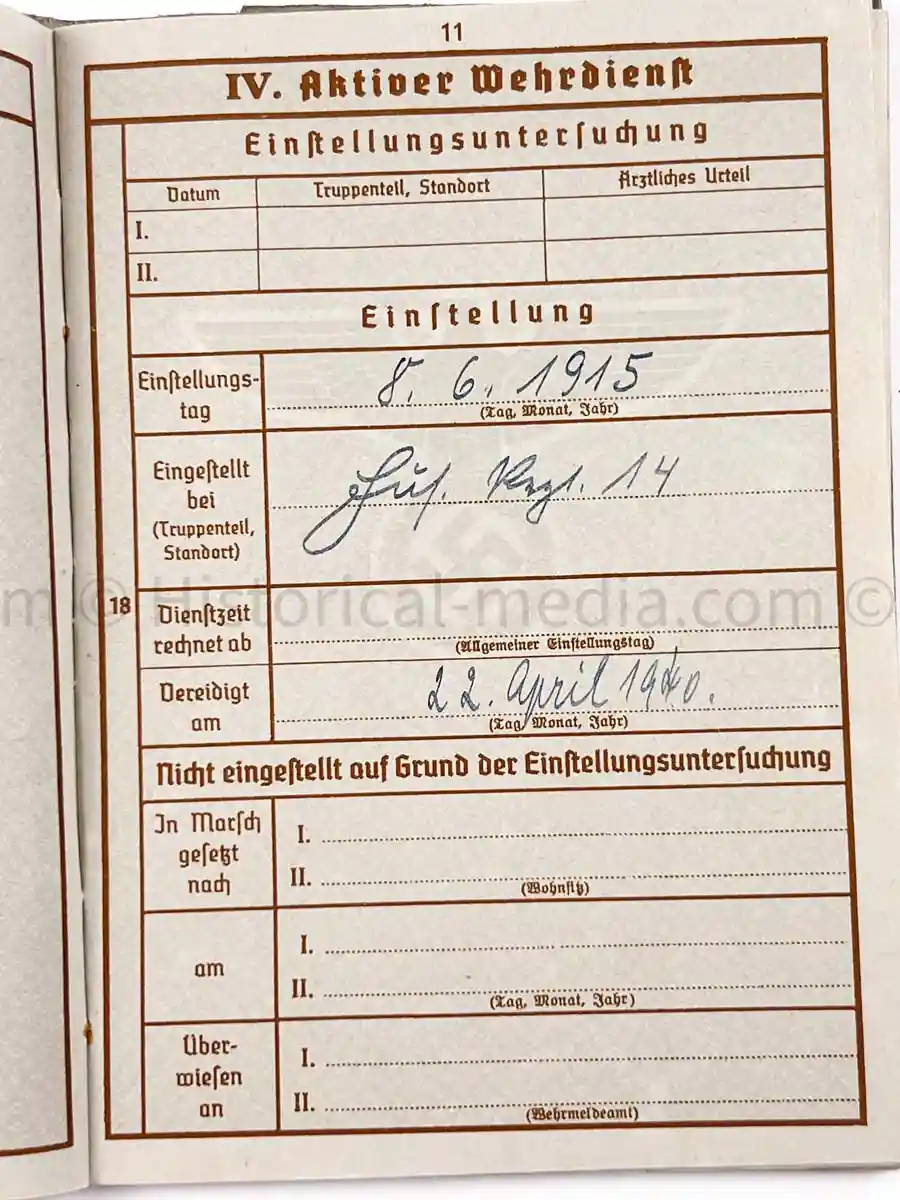 11
IV. Aktiver Wehrdienst
Einstellungsuntersuchung
Datum Truppenteil, Standort Ärztliches Urteil
I.
II.
Einstellung
Einstellungs-
tag
8. 6. 1915
(Tag, Monat, Jahr)
Eingestellt
bei
(Truppenteil,
Standort)
Hus. Regt. 14
m © Historical-media.com ©
18
Dienstzeit
rechnet ab
(Allgemeiner Einstellungstag)
Vereidigt
am
22. April 1940.
(Tag, Monat, Jahr)
Nicht eingestellt auf Grund der Einstellungsuntersuchung
In Marsch
gesetzt
nach
I.
II.
(Wohnsitz)
am
I.
II.
(Tag, Monat, Jahr)
Über-
wiesen
an
I.
II.
(Wehrmeldeamt)